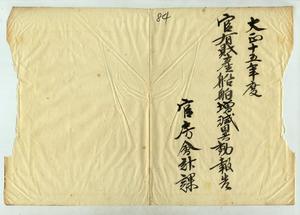 84
大正十五年度
官有財産船舶増減異動報告
官房会計課